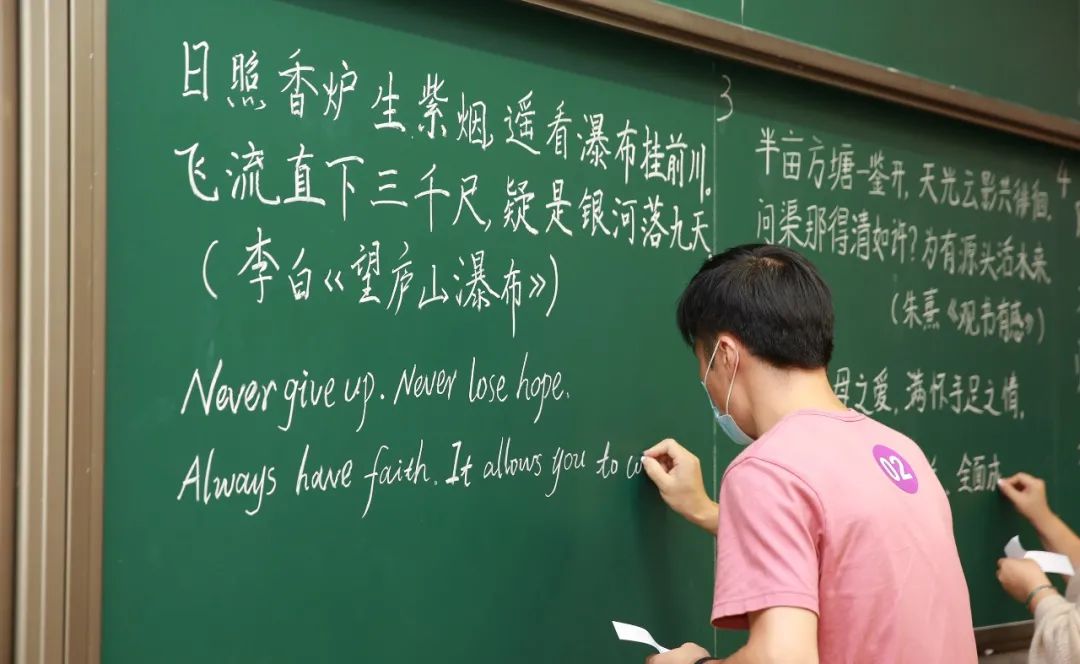 日照香炉生紫烟,遥看瀑布挂前川.
飞流直下三千尺,疑是银河落九天.
(李白《望庐山瀑布》)
Never give up. Never lose hope.
Always have faith. It allows you to
3
半亩方塘一鉴开,天光云影共徘徊.
问渠那得清如许?为有源头活水来
(朱熹《观书有感》)
母之爱,满怀手足之情.
全面
4
02